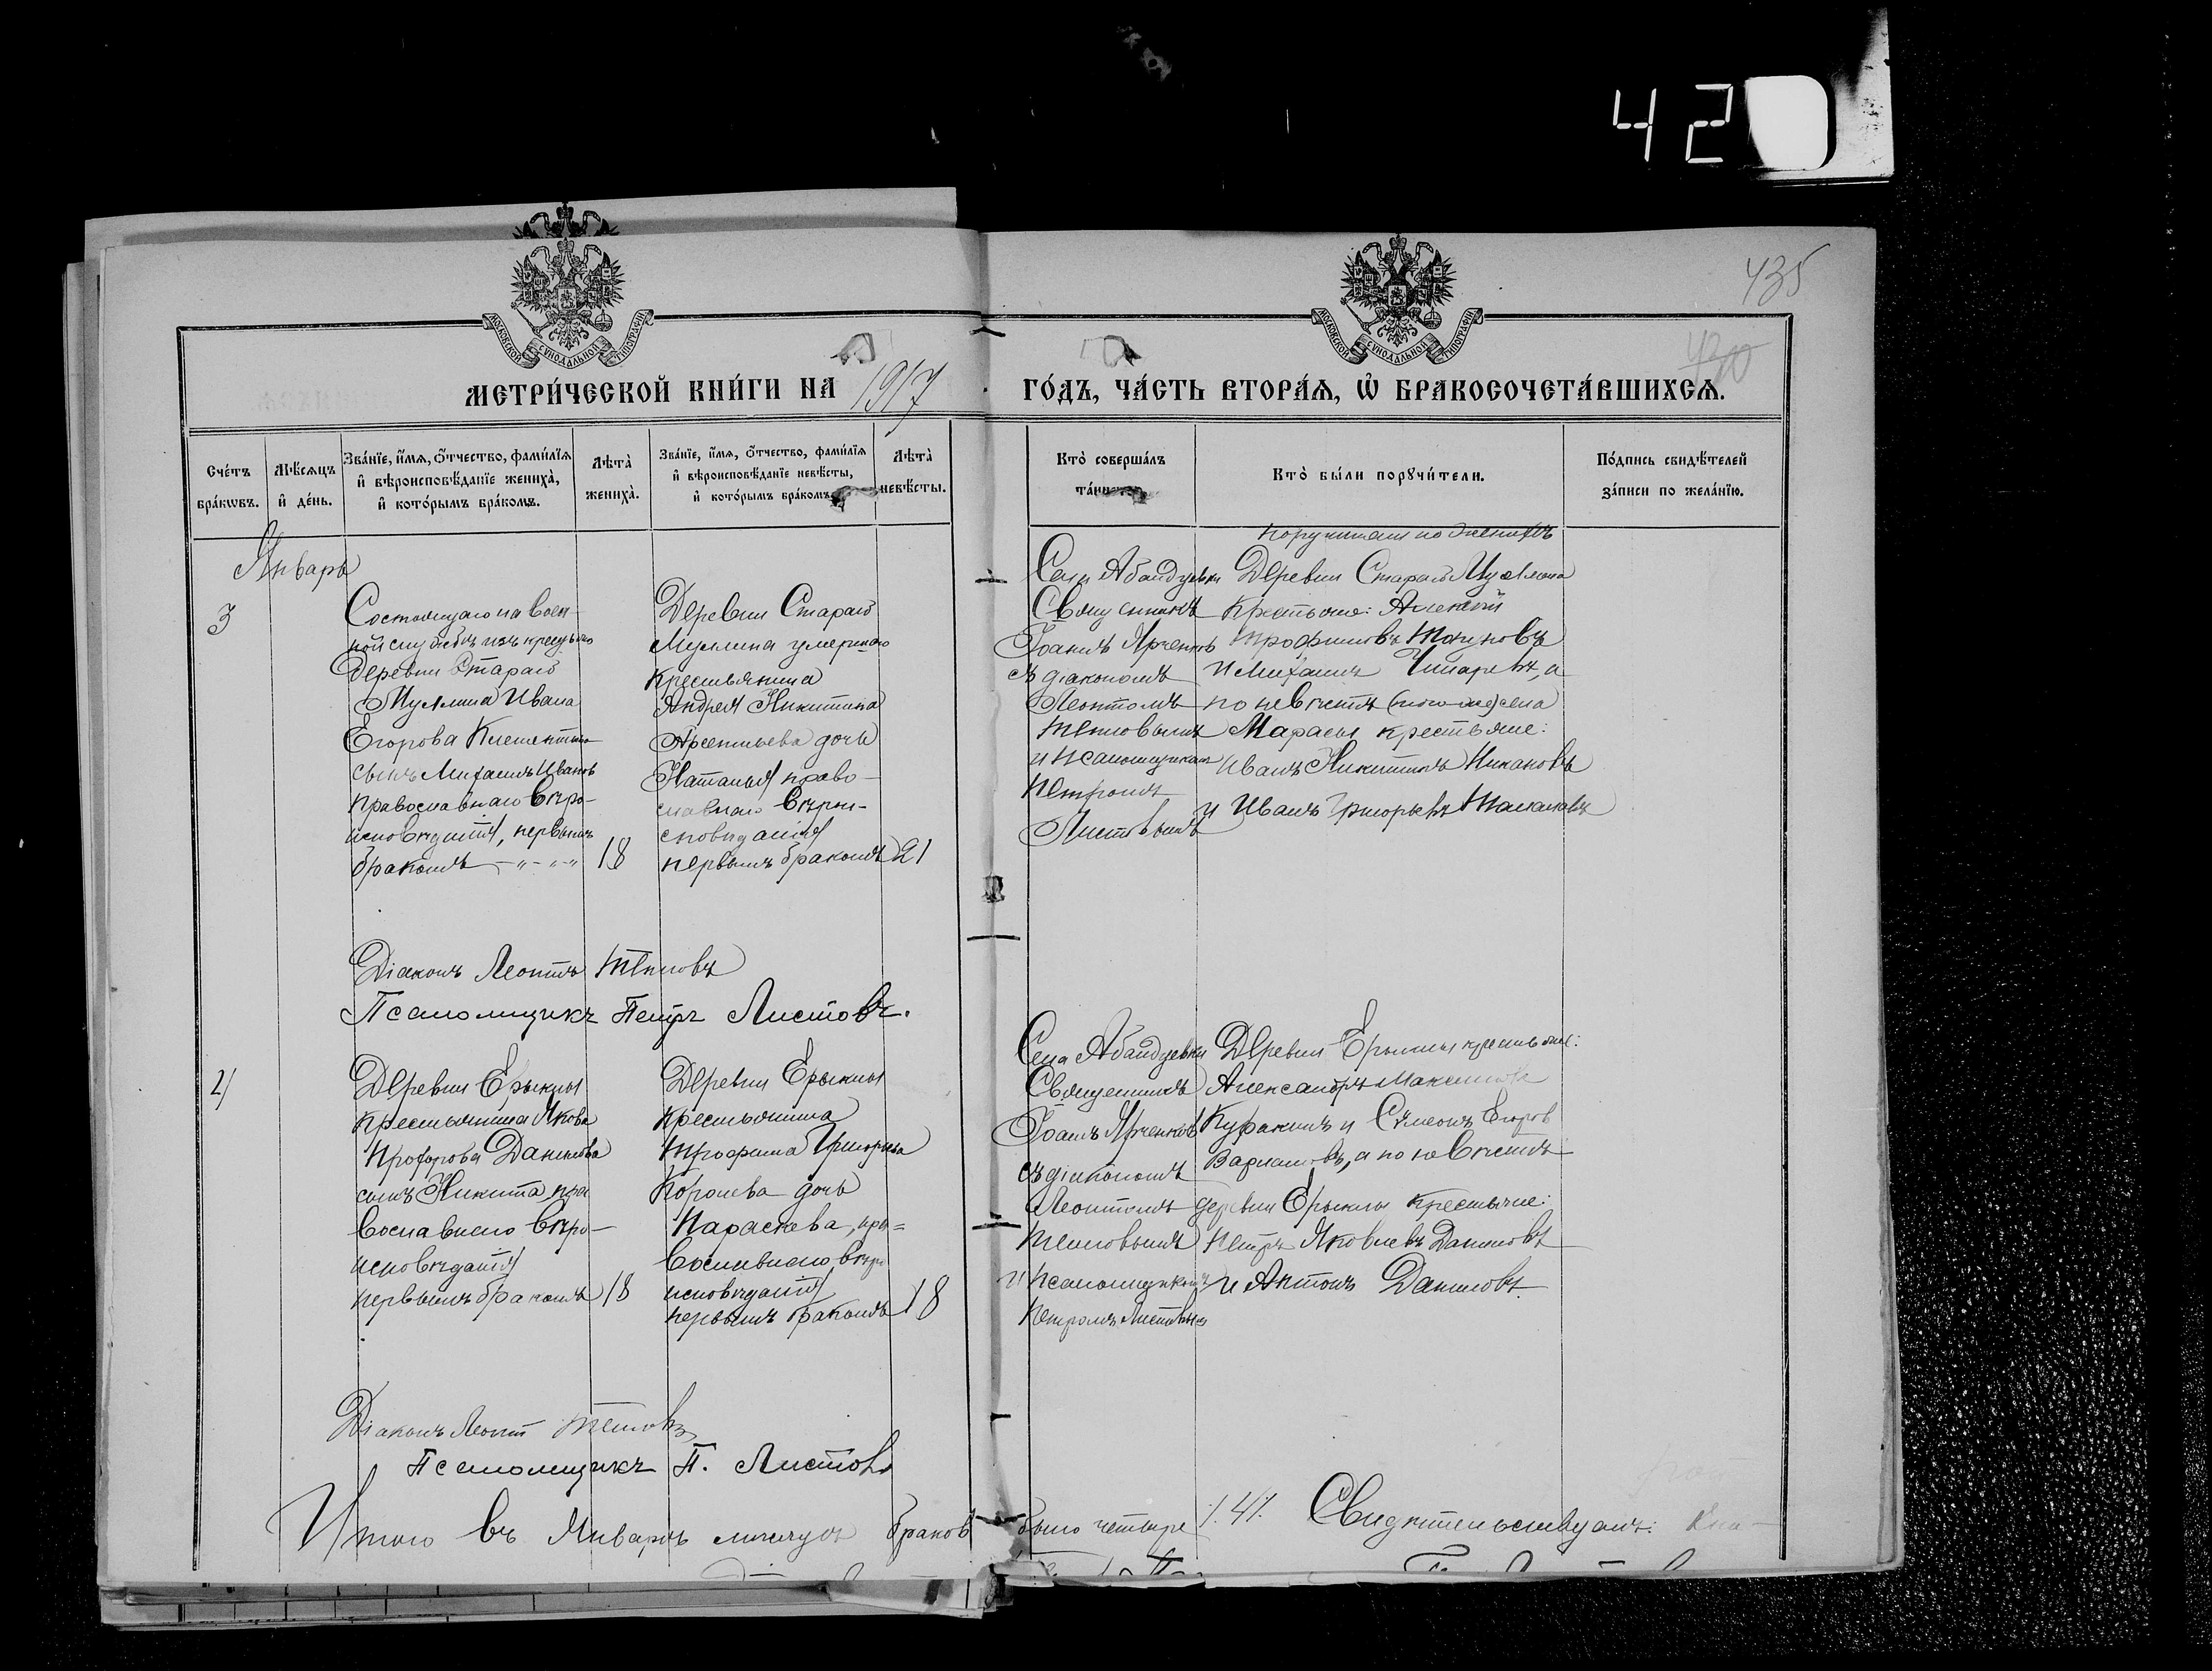 42
435
430
МОСКОВСКОЙ СѴНОДАЛЬНОЙ ТИПОГРАФІИ
МОСКОВСКОЙ СѴНОДАЛЬНОЙ ТИПОГРАФІИ
МЕТРИ́ЧЕСКОЙ КНИ́ГИ НА 1917 ГО́ДЪ, ЧА́СТЬ ВТОРА́Ѧ, Ѽ БРАКОСОЧЕТА́ВШИХСѦ.
Сче́тъ бра́кѡвъ.
Мѣ́сѧцъ и҆ де́нь.
Зва́нїе, и҆́мѧ, ѻ҆́тчество, фами́лїѧ
и҆ вѣроисповѣ́данїе жениха̀,
и҆ кото́рымъ бра́комъ.
Лѣта̀ жениха̀.
Зва́нїе, и҆́мѧ, ѻ҆́тчество, фами́лїѧ
и҆ вѣроисповѣ́данїе невѣ́сты,
и҆ кото́рымъ бра́комъ
Лѣта̀ невѣ́сты.
Кто̀ соверша́лъ
Кто̀ бы́ли порꙋчи́тели.
По́дпись свидѣ́телей
за́писи по жела́нїю.
Январь
3
Состоящаго на воен-
ной службѣ изъ крестьянъ
Деревни Старат
Муллина Ивана
Егорова Клементьева
сынъ Михаилъ Ивановъ
православнаго вѣро-
исповѣданія, первымъ
бракомъ
18
Деревни Старат
Муллина умершаго
крестьянина
Андрея Никитина
Арсентьева дочь
Наталья право-
славнаго вѣрои-
сповѣданія
первымъ бракомъ
21
Села Абайдуевки
Священникъ
Іоаннъ Ярченковъ
съ діакономъ
Леонтіемъ
Тепловымъ
и псаломщикомъ
Петромъ
Листовымъ
поручители по женихѣ
Деревни Старат Муллина
крестьяне: Алексѣй
Трофимовъ
и Михаилъ, а
по невѣстѣ села
Марасы крестьяне:
Иванъ Никитинъ
и Иванъ Григорьевъ
Діаконъ Леонтій Тепловъ
Псаломщикъ Петръ Листовъ.
4
Деревни Ерыклы
крестьянина Якова
Прохорова Данилова
сынъ Никита, пра
вославнаго вѣро-
исповѣданія
первымъ бракомъ
18
Деревни Ерыклы
крестьянина
Трофима Григорьева
Королева дочь
Параскева, пра=
вославнаго вѣро
исповѣданія
первымъ бракомъ
18
Села Абайдуевки
Священникъ
Іоаннъ Ярченковъ
съ діакономъ
Леонтіемъ
Тепловымъ
и псаломщикомъ
Петромъ Листовымъ
Деревни Ерыклы крестьяне:
Александръ Максимовъ
Куракинъ и Сѵмеонъ Егоров
Варламовъ, а по невѣстѣ
деревни Ерыклы крестьяне:
Петръ Яковлевъ Даниловъ
и Антонъ Даниловъ.
Діаконъ Леонтій Тепловъ
Псаломщикъ П. Листовъ
Итого въ Январѣ мѣсяцѣ браковъ было четыре /.4/. Свидѣтельствуемъ: